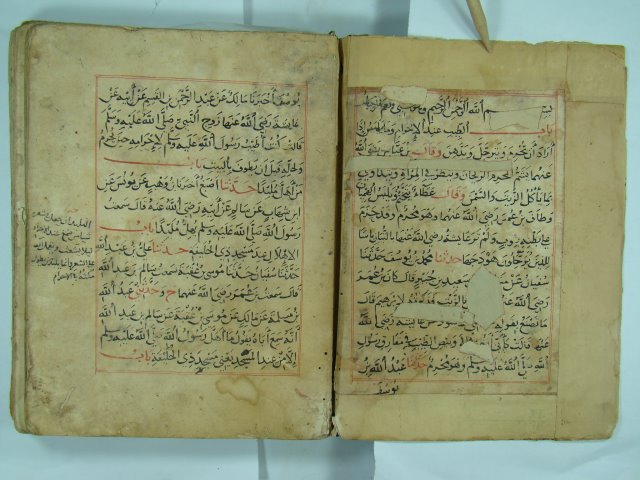 بسم الله الرحمن الرحيم
باب الطيب عند الإحرام وما يلبس إذا
أراد أن يحرم ويترجل ويدهن وقال ابن عباس رضي الله
عنهما يشم المحرم الريحان وينظر في المرآة ويتداوى
بما يأكل الزيت والسمن وقال عطاء يتختم ويلبس الهميان
وطاف ابن عمر رضي الله عنهما وهو محرم وقد حزم
على بطنه بثوب ولم تر عائشة رضي الله عنها بالتبان بأسا
للذين يرحلون هودجها حدثنا محمد بن يوسف حدثنا
سفيان عن سعيد بن جبير قال كان ابن عمر
رضي الله عنهما بالزيت فذكرته لإبراهيم قال
ما تصنع بقوله الأسود عن عائشة رضي الله
عنها قالت كأني وبيص الطيب في مفارق رسول
الله صلى الله عليه وسلم وهو محرم حدثنا عبد الله بن
يوسف
يوسف أخبرنا مالك عن عبد الرحمن بن القسم عن أبيه عن
عائشة رضي الله عنها زوج النبي صلى الله عليه وسلم
قالت كنت أطيب رسول الله صلى الله عليه وسلم لإحرامه حين يحرم
ولحله قبل أن يطوف بالبيت باب
من أهل ملبدا حدثنا أصبغ أخبرنا ابن وهب عن يونس عن
ابن شهاب عن سالم عن أبيه رضي الله عنه قال سمعت
رسول الله صلى الله عليه وسلم يهل ملبدا باب
الإهلال عند مسجد ذي الحليفة حدثنا علي بن عبد الله
حدثنا سفيان حدثنا موسى بن عقبة سمعت سالم بن عبد الله
قال سمعت ابن عمر رضي الله عنهما ح وحدثني عبد الله
بن مسلمة عن مالك عن موسى بن عقبة عن سالم بن عبد الله
أنه سمع أباه يقول ما أهل رسول الله صلى الله عليه وسلم
إلا من عند المسجد يعني مسجد ذي الحليفة باب